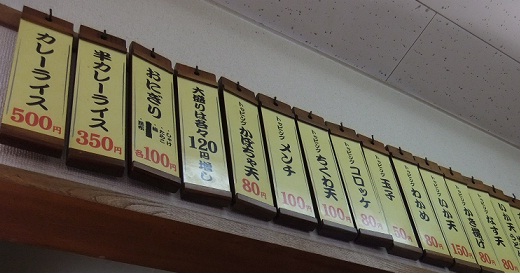 カレーライス
500円
半カレーライス
350円
おにぎり
各100円
大盛りは各々
120円増し
トッピング
かぼちゃ天
80円
トッピング
メンチ
100円
トッピング
ちくわ天
100円
トッピング
コロッケ
80円
トッピング
玉子
50円
トッピング
わかめ
80円
トッピング
いか天
150円
かき揚げ
80円
なす天
80円